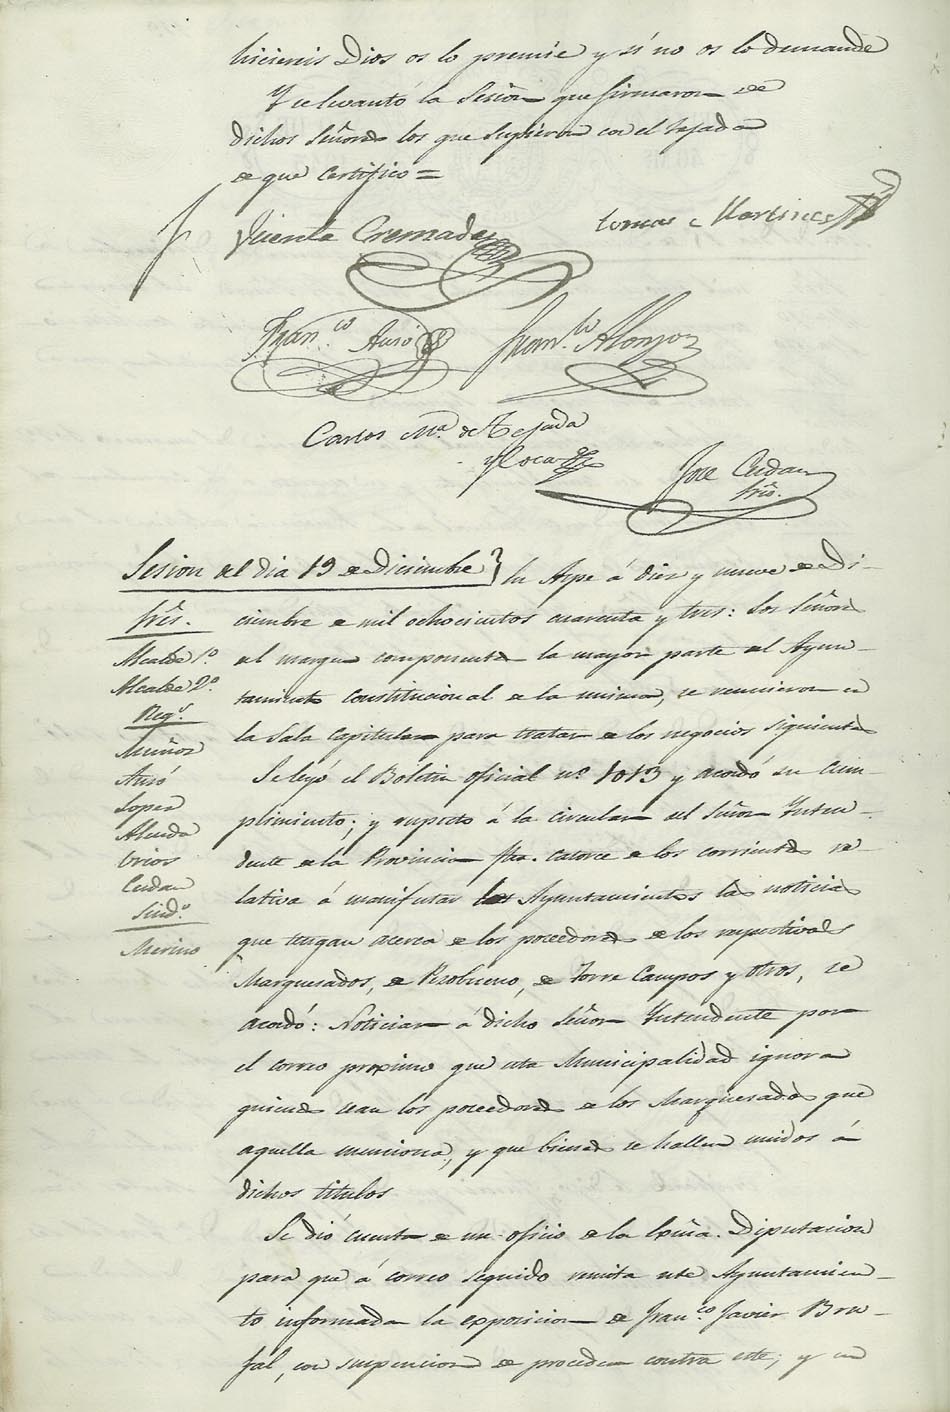 hiciereis Dios os lo premie y si no os lo demande
Y se levantó la Sesion que firmaron de
dichos Señores los que supieron con el
de que Certifico =
Vicente Cremades
tomas Martines
Fran.co Auso
Fran.co Alonso
Carlos Ma. de Tejada
y Loca
Jose Cerdan
Srio.
Sesion del dia 19 de Diciembre
En Aspe á diez y nueve de Di-
Sres.
ciembre de mil ochocientos cuarenta y tres: los Señores
Alcalde 1o.
del margen componentes la mayor parte del Ayun-
Alcalde 2o.
tamiento Constitucional de la misma, se reunieron en
Regs.
la Sala Capitular para tratar de los negocios siguientes
Muñoz
Se leyó el Boletin oficial no. 1013 y acordó su Cum-
Ausó
Lopez
plimiento; y respecto á la circular del Señor Inten-
Almida
dente de la Provincia fha. catorce de los corrientes re-
Urios
Cerdan
lativa á manifestar los Ayuntamientos las noticias
Sind.o
que tengan acerca de los poseedores de los respectivos
Merino
Marquesados, de Peñobueno, de Torre Campos y otros, se
acordó: Noticiar á dicho Señor Intendente por
el correo proximo que esta Municipalidad ignora
quienes sean los poseedores de los Marquesados que
aquella menciona, y que bienes se hallen unidos á
dichos titulos
Se dió cuenta de un oficio de la Exma. Diputacion
para que á correo seguido remita este Ayuntamien-
to informada la exposicion de Fran.co Javier Bru-
fal, con suspencion de proceder contra este; y en